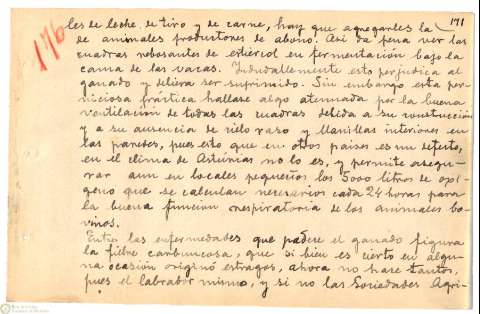 171
176
les de leche, de tiro y de carne, hay que agregarles la
de animales productores de abono. Asi da pena ver las
cuadras rebosantes de estiércol en fermentación bajo la
cama de las vacas. Indudablemente esto perjudica al
ganado y debiera ser suprimido. Sin embargo esta per-
niciosa práctica hallase algo atenuada por la buena
ventilación de todas las cuadras debida a su construcción
y a su ausencia de cielo raso y llanillas interiores en
las paredes, pues esto que en otros paises es un defecto,
en el clima de Asturias no lo es, y permite asegu-
rar aun en locales pequeños los 5000 litros de oxí-
geno que se calculan necesarios cada 24 horas para
la buena funcion respiratoria de los animales bo-
vinos.
Entre las enfermedades que padece el ganado figura
la fiebre carbuncosa, que si bien es cierto en algu-
na ocasión originó estragos, ahora no hace tantos,
pues el labrador mismo, y si no las Sociedades Agri-